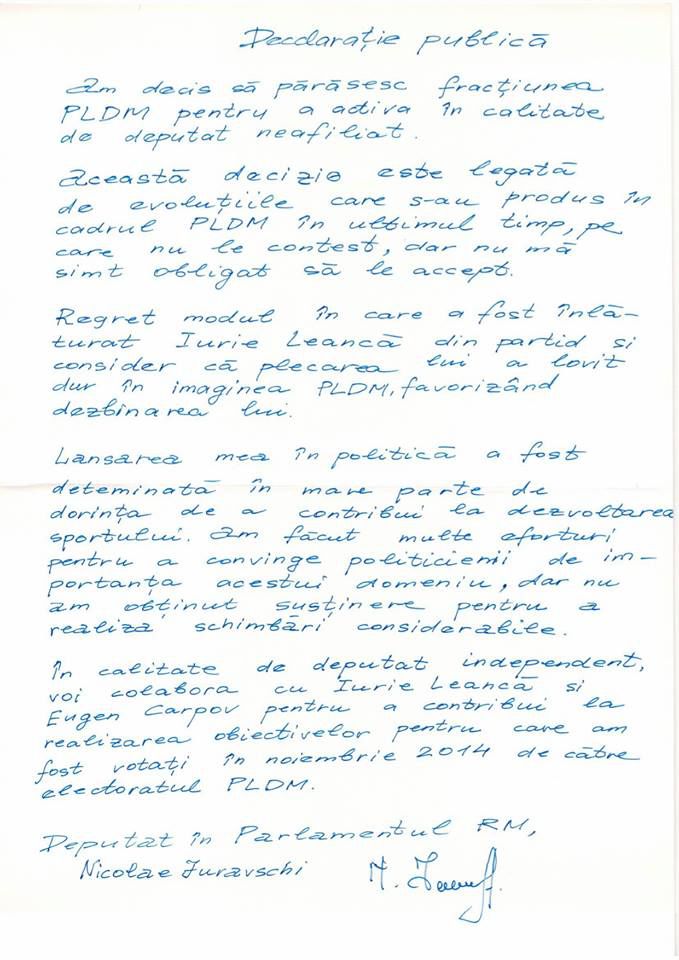 Decdarație publică
Am decis să părăsesc fracțiunea
PLDM pentru a activa în calitate
de deputat neafiliat.
Această decizie este legată
de evoluțiile care s-au produs în
cadrul PLDM în ultimul timp, pe
care nu le contest, dar nu mă
simt obligat să le accept.
Regret modul în care a fost înlă-
turat Iurie Leancă din partid si
consider că plecarea lui a lovit
dur în imaginea PLDM, favorizând
dezbinarea lui.
Lansarea mea în politică a fost
deteminată în mare parte de
dorința de a contribui la dezvoltarea
sportului. Am făcut multe eforturi
pentru a convinge politicienii de im-
portanța acestui domeniu, dar nu
am obținut susținere pentru a
realiza schimbări considerabile.
În calitate de deputat independent,
voi colabora cu Iurie Leancă si
Eugen Carpov pentru a contribui la
realizarea obiectivelor pentru care am
fost votați în noiembrie 2014 de către
electoratul PLDM.
Deputat în Parlamentul RM,
Nicolae Juravschi